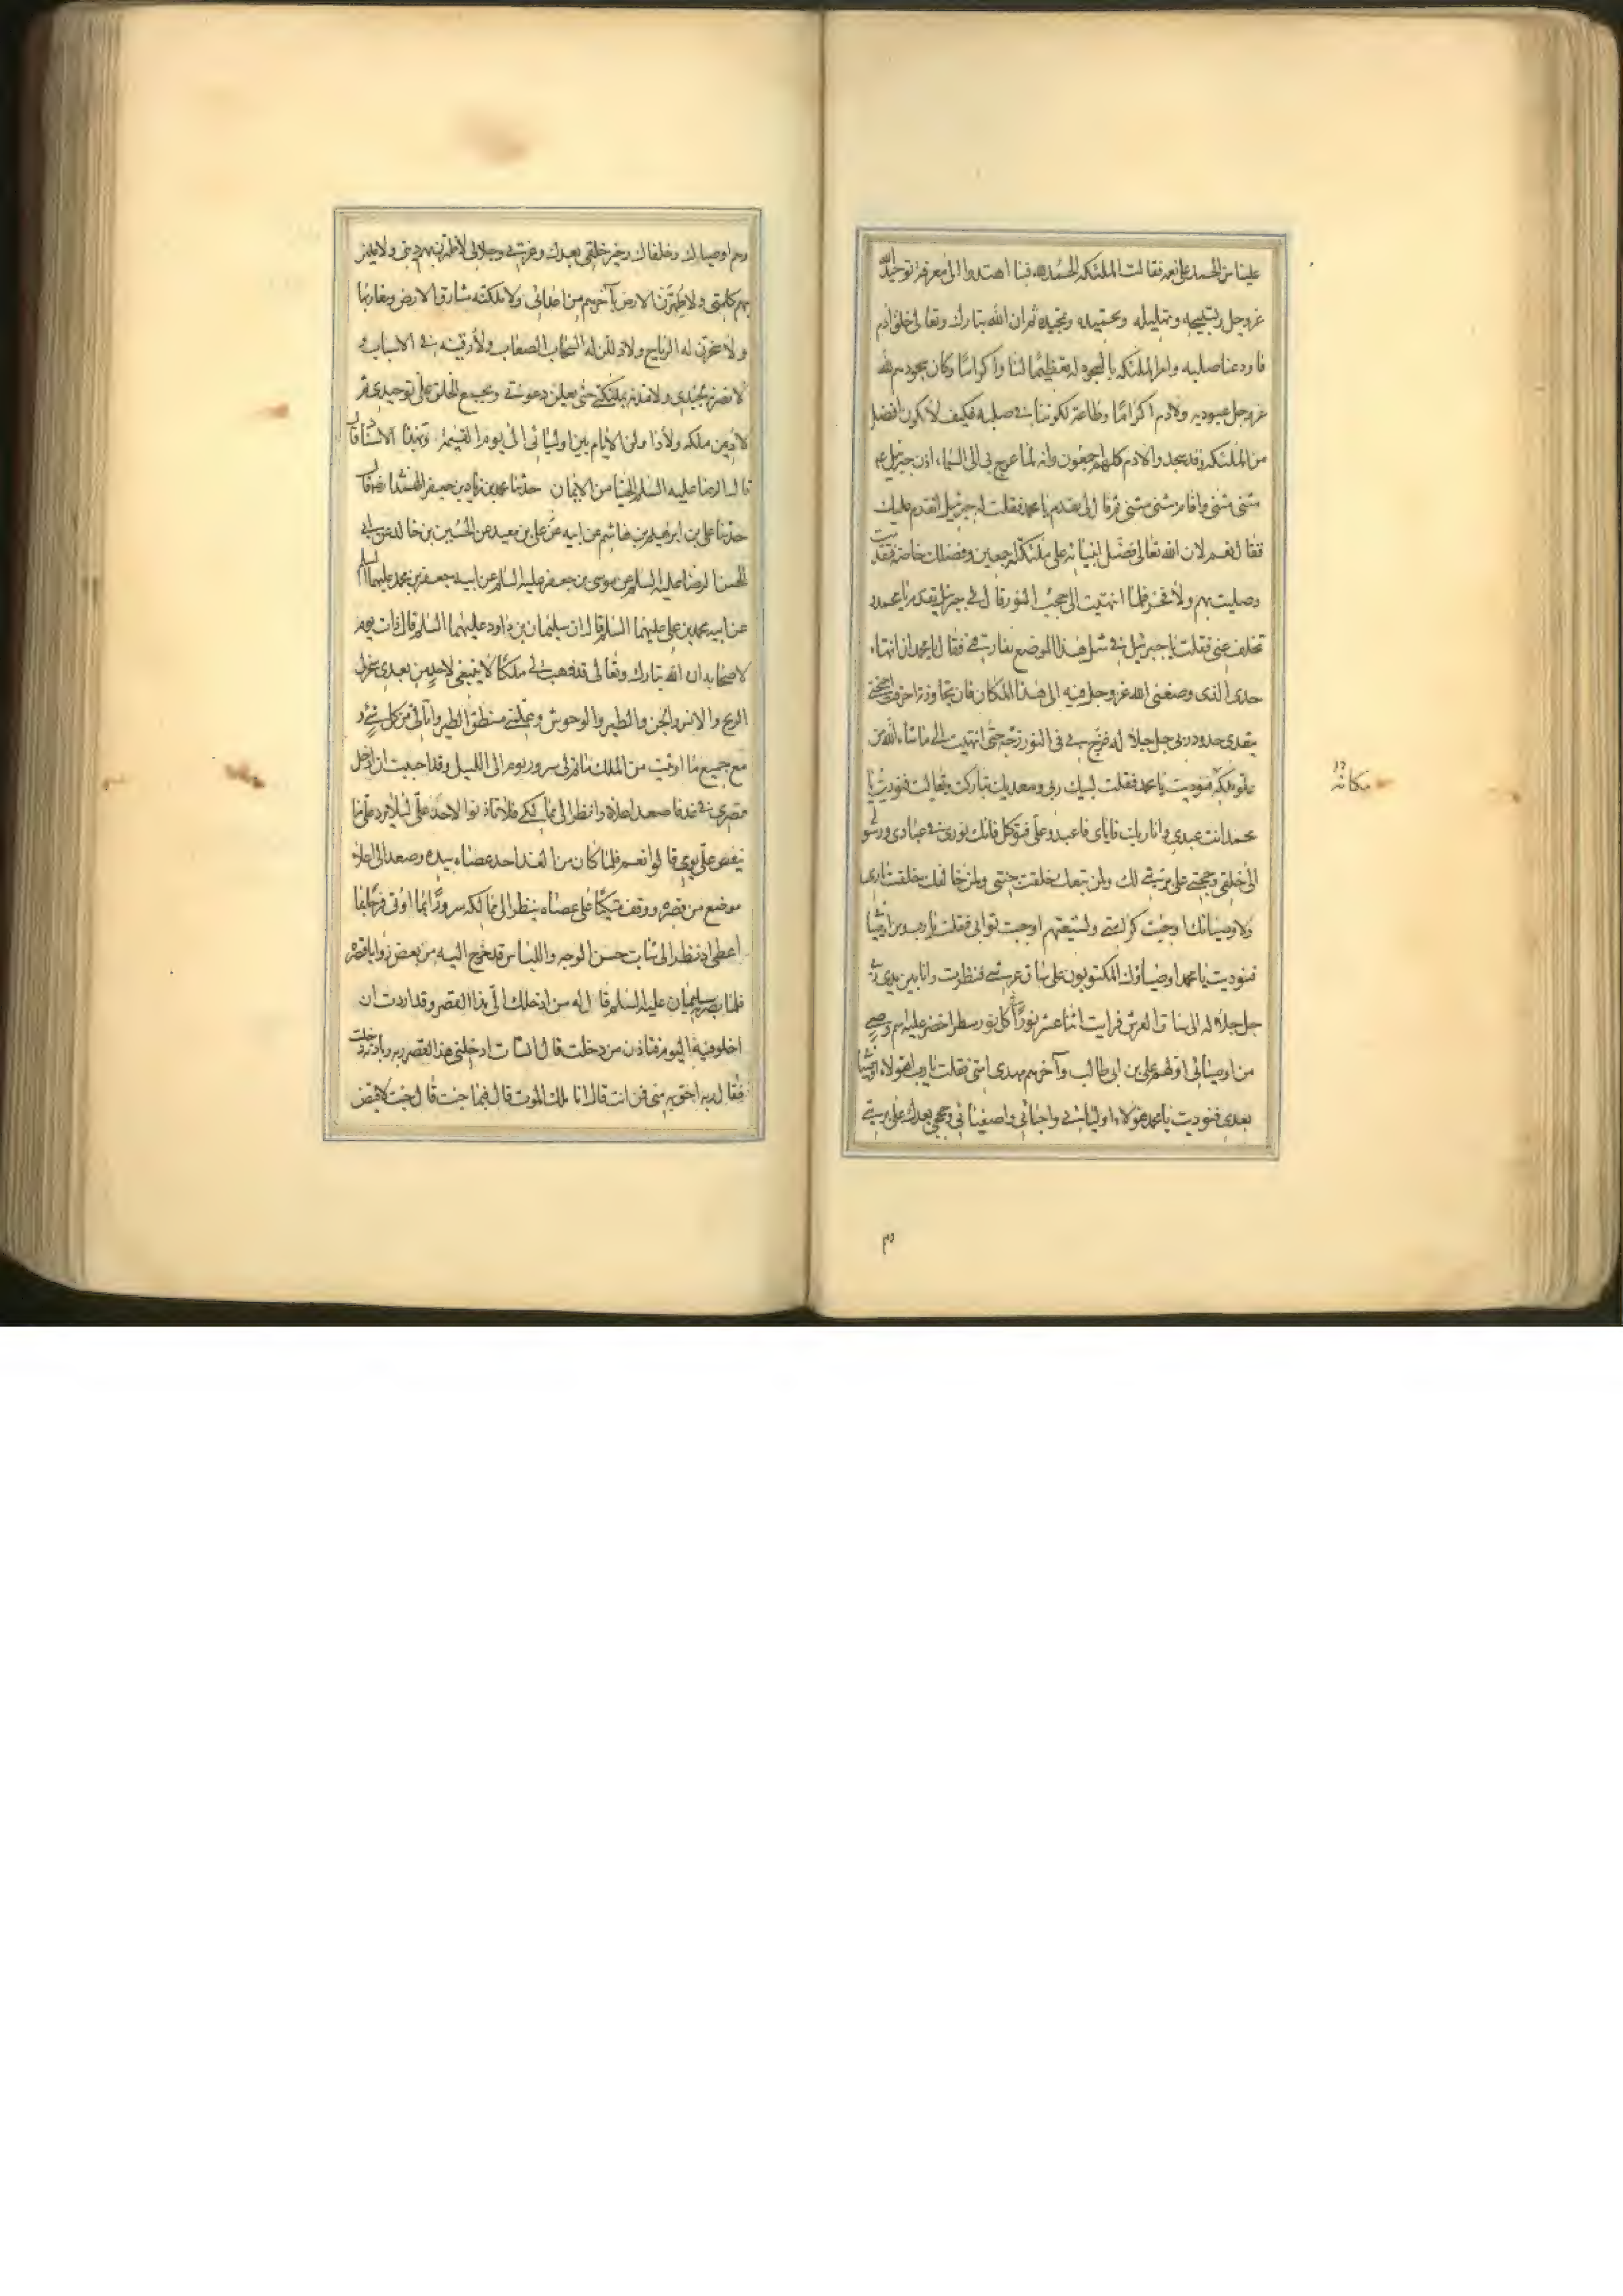 علينا من الحمد على نعمه فقالت الملئكة الحمد لله فبنا اهتدوا الى معرفة توحيد الله
عزوجل وتسبيحه وتهليله وتحميده وتمجيده ثم ان الله تبارك وتعالى خلق ادم
فاودعنا صلبه وامر الملئكة بالسجود له تعظيما لنا واكراما وكان سجودهم لله
عزوجل عبودية ولادم اكراما وطاعة لكوننا في صلبه فكيف لا نكون افضل
من الملئكة وقد سجدوا لادم كلهم اجمعون وانه لما عرج بي الى السماء اذن جبرئيل
مثنى مثنى واقام مثنى مثنى ثم قال لي تقدم يا محمد فقلت له جبرئيل اتقدم عليك
فقال نعم لان الله تعالى فضل انبيائه على ملئكته اجمعين وفضلك خاصة فتقدمت
وصليت بهم ولا فخر فلما انتهيت الى حجب النور قال لي جبرئيل تقدم يا محمد و
تخلف عني فقلت يا جبرئيل في مثل هذا الموضع تفارقني فقال يا محمد ان انتهاء
حدي الذي وضعني الله عزوجل فيه الى هذا المكان فان تجاوزته احترقت اجنحتي
بتعدي حدود ربي جل جلاله فزج بي في النور زخة حتى انتهيت الى ما شاء الله من
علو ملكه فنوديت يا محمد فقلت لبيك ربي وسعديك تباركت وتعاليت فنوديت يا
مكانه
محمد انت عبدي وانا ربك فاياي فاعبد وعلي فتوكل فانك نوري في عبادي ورسولي
الى خلقي وحجتي على بريتي لك ولمن تبعك خلقت جنتي ولمن خالفك خلقت ناري
ولاوصيائك اوجبت كرامتي ولشيعتهم اوجبت ثوابي فقلت يا رب ومن اوصيائي
فنوديت يا محمد اوصياؤك المكتوبون على ساق عرشي فنظرت وانا بين يدي ربي
جل جلاله الى ساق العرش فرايت اثنا عشر نورا في كل نور سطر اخضر عليه اسم وصي
من اوصيائي اولهم علي بن ابي طالب وآخرهم مهدي امتي فقلت يا رب هؤلاء اوصيائي
بعدي فنوديت يا محمد هؤلاء اوليائي واحبائي واصفيائي وحججي بعدك على بريتي
وهم اوصياؤك وخلفاؤك وخير خلقي بعدك وعزتي وجلالي لاظهرن بهم ديني ولاعلين
بهم كلمتي ولاطهرن الارض بآخرهم من اعدائي ولاملكنه مشارق الارض ومغاربها
ولاسخرن له الرياح ولاذللن له السحاب الصعاب ولارقينه في الاسباب و
لانصرنه بجندي ولامدنه بملئكتي حتى يعلن دعوتي ويجمع الخلق على توحيدي ثم
لاديمن ملكه ولاداولن الايام بين اوليائي الى يوم القيمة وبهذا الاسناد قال
قال الرضا عليه السلم الحيا من الايمان حدثنا محمد بن زياد بن جعفر الهمداني قال
حدثنا علي بن ابرهيم بن هاشم عن ابيه عن علي بن معبد عن الحسين بن خالد عن ابي
الحسن الرضا عليه السلم عن موسى بن جعفر عليه السلم عن ابيه جعفر بن محمد عليهما السلم
عن ابيه محمد بن علي عليهما السلم قال ان سليمان بن داود عليهما السلم قال ذات يوم
لاصحابه ان الله تبارك وتعالى قد وهب لي ملكا لا ينبغي لاحد من بعدي سخر لي
الريح والانس والجن والطير والوحوش وعلمني منطق الطير واتاني من كل شيء و
مع جميع ما اوتيت من الملك ما تم لي سرور يوم الى الليل وقد احببت ان ادخل
قصري في غد فاصعد اعلاه وانظر الى ممالكي فلا تاذنوا لاحد علي لئلا يرد علي ما
ينغص علي يومي قالوا نعم فلما كان من الغد اخذ عصاه بيده وصعد الى اعلا
موضع من قصره ووقف متكيا على عصاه ينظر الى ممالكه سرورا بما اوتي فرحا بما
اعطي اذ نظر الى شاب حسن الوجه واللباس قد خرج اليه من بعض زوايا قصره
فلما بصر به سليمان عليه السلم قال له من ادخلك الى هذا القصر وقد اردت ان
اخلو فيه اليوم فباذن من دخلت قال الشاب ادخلني هذا القصر ربه وباذنه دخلت
فقال ربه احق به مني فمن انت قال انا ملك الموت قال فيما جئت قال جئت لاقبض